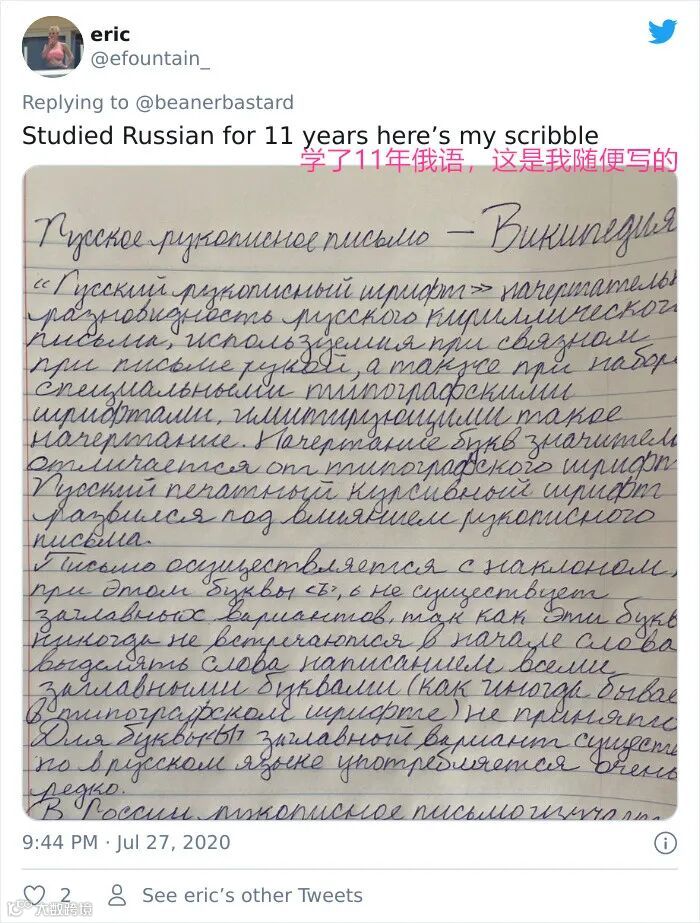 eric
@efountain_
Replying to @beanerbastard
Studied Russian for 11 years here’s my scribble
学了11年俄语，这是我随便写的
Русское рукописное письмо — Википедия
“Русский рукописный шрифт» начертатель
разновидность русского кириллического
письма, используемая при связном
при письме рукой, а также при набор
специальными типографскими
шрифтами, имитирующими такое
начертание. Начертание букв значител
отличается от типографского шрифт
Русский печатный курсивный шрифт
развился под влиянием рукописного
письма.
Письмо осуществляется с наклоном,
при этом буквы не существует
заглавных вариантов, так как эти букв
никогда не встречаются в начале слова
выделять слова написанием всеми
заглавными буквами (как иногда бывае
в типографском шрифте) не принято
Для буквы заглавный вариант существ
но в русском языке употребляется очень
редко.
В России рукописное письмо
9:44 PM · Jul 27, 2020
2
See eric’s other Tweets
大数跨境